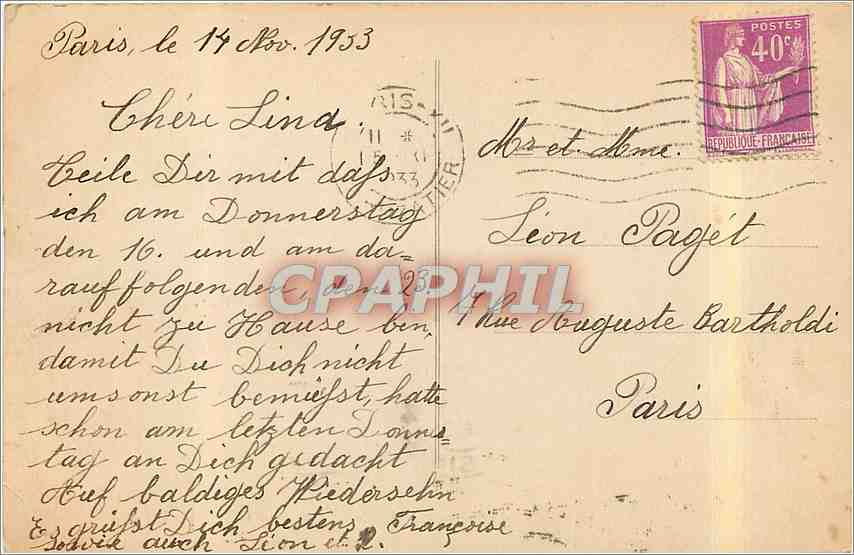 Paris, le 14 Nov. 1933
Chére Lina.
Teile Dir mit dass
ich am Donnerstag
den 16. und am da=
rauffolgenden, den 23.
nicht zu Hause ben,
damit Du Dich nicht
umsonst bemüsst, hatte
schon am letzten Donners=
tag an Dich gedacht
Auf baldiges Wiedersehn
Es grüsst Dich bestens Françoise
sowie auch Léon et
POSTES
40c
REPUBLIQUE-FRANÇAISE
Mr et Mme.
Léon Pagét
Rue Auguste Bartholdi
Paris
CPAPHIL